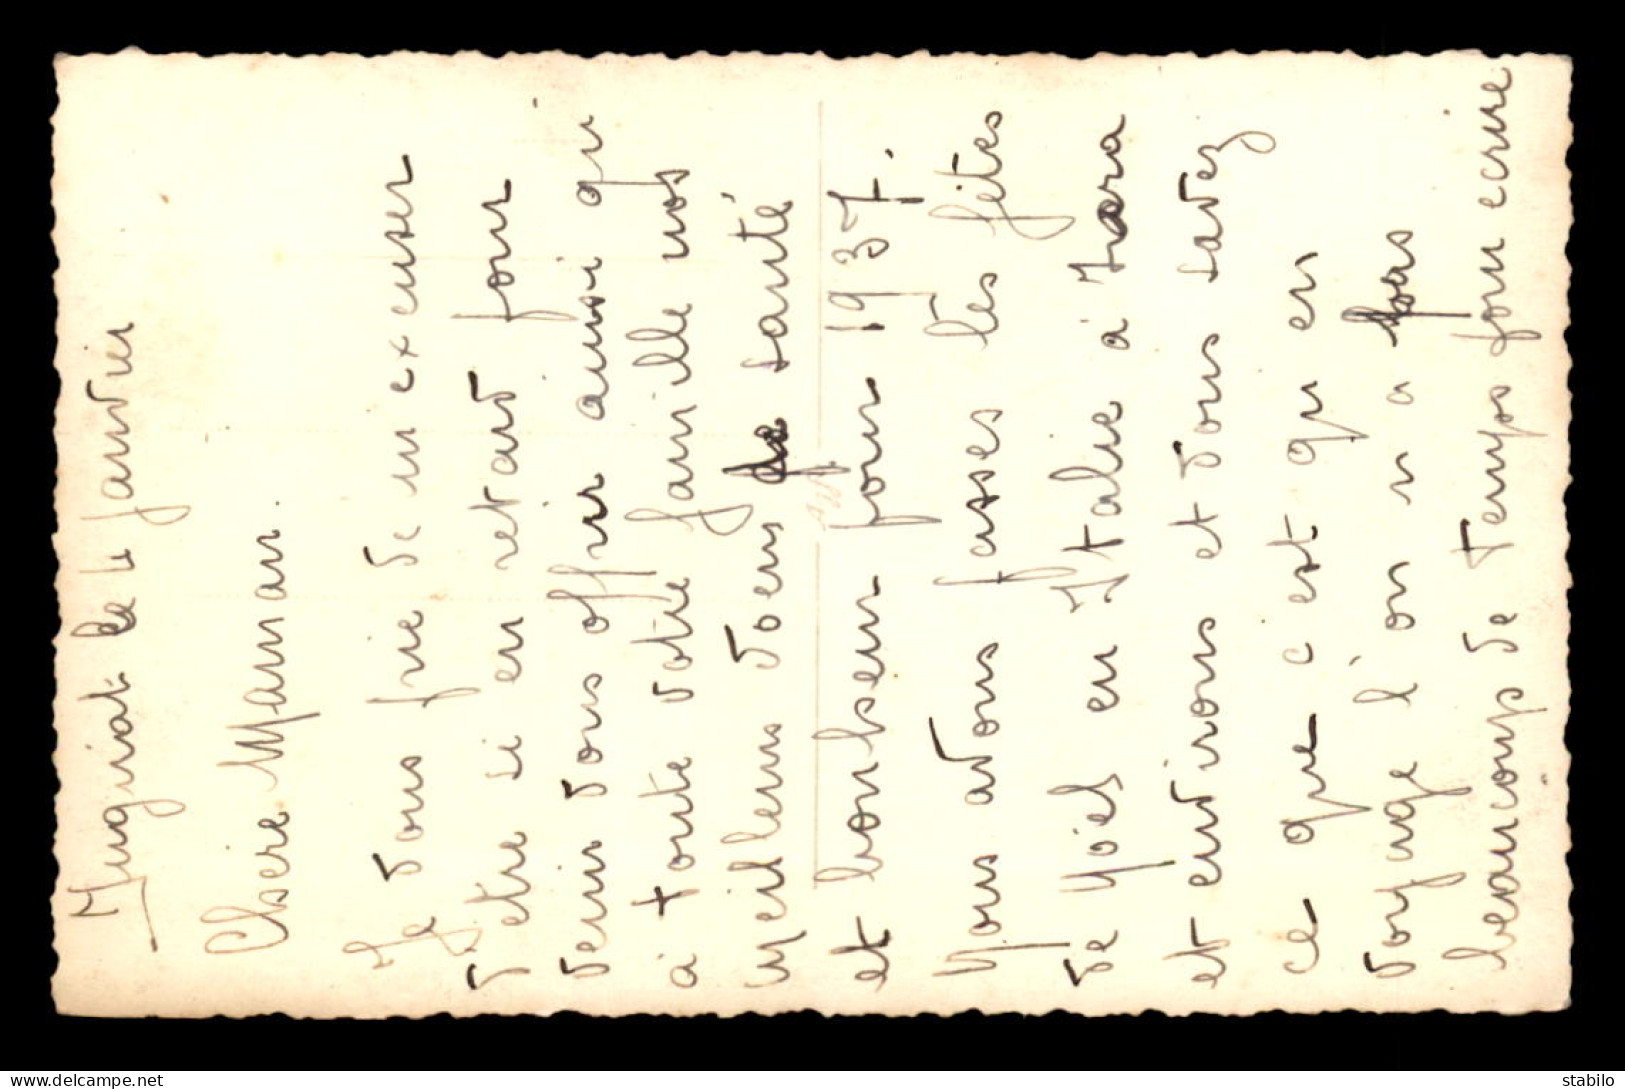 le 4 janvier
Chere Maman.
Je vous prie de m excuser
d etre si en retard pour
venir vous offrir ainsi qu
à toute votre famille nos
meilleurs voeux de santé
et bonheur pour 1937.
Nous avons passes les fêtes
de Noël en Italie à
et environs et vous savez
ce que c est qu en
voyage l'on n a pas
beaucoup de temps pour ecrire
delcampe.net
stabilo